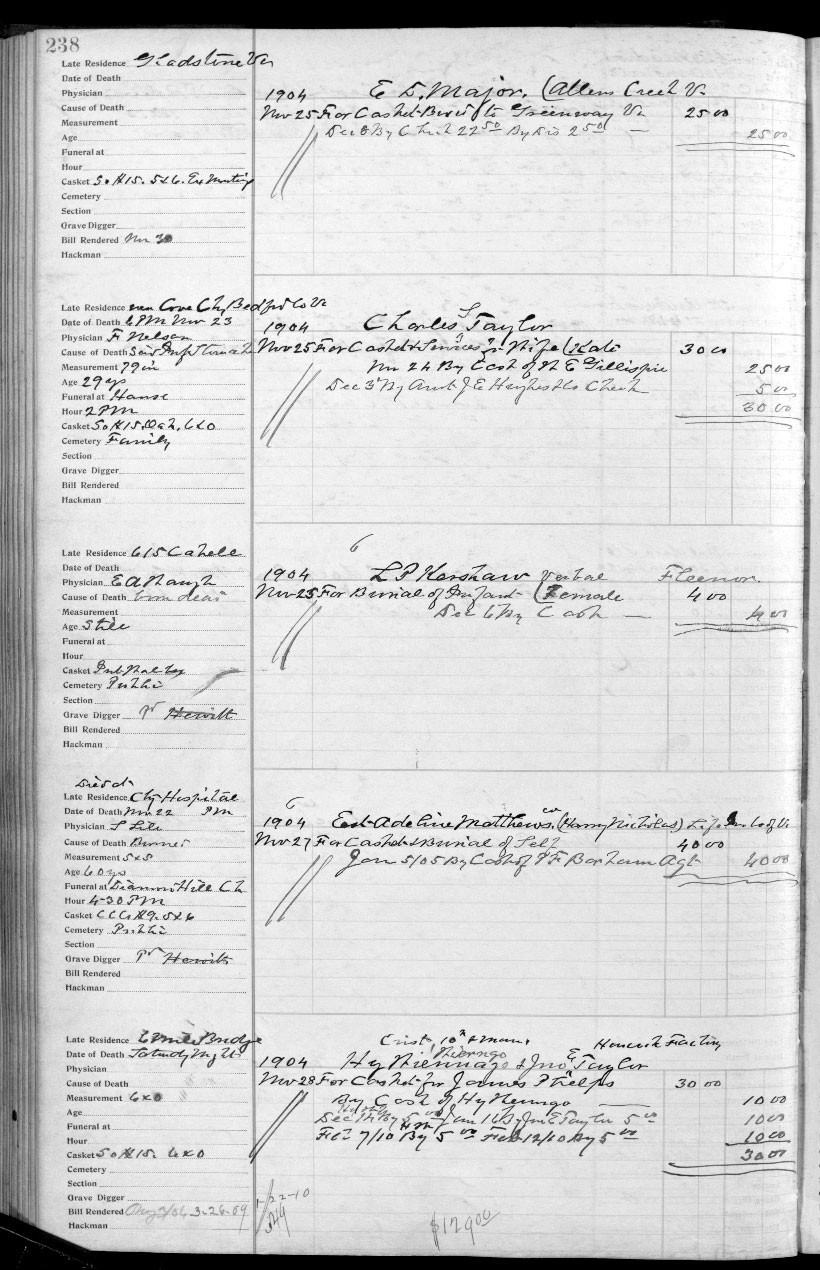 238
Late Residence Gladstone Va
Date of Death
Physician
Cause of Death
Measurement
Age
Funeral at
Hour
Casket S. H 15. 5x6.
Cemetery
Section
Grave Digger
Bill Rendered Nov 30
Hackman
1904 E D. Major. (Allens Creek Va
Nov 25 For Casket Box to Greenway Va 25 00
Dec 8 By Check 22 50 By Dis 2 50 — 25 00
Late Residence near Cove Ch, Bedford Co Va
Date of Death 6 PM Nov 23
Physician F Nelson
Cause of Death
Measurement 79 in
Age 29 ys
Funeral at House
Hour 2 PM
Casket So H 15. Oak. 6x0
Cemetery Family
Section
Grave Digger
Bill Rendered
Hackman
1904 Charles S Taylor
Nov 25 For Casket & Services for Wife (Kate 30 00
Nov 24 By Cash of E Gillispie 25 00
Dec 3 By Amt J E Hughes Check 5 00
30 00
Late Residence 615 Cabell
Date of Death
Physician E A
Cause of Death Born dead
Measurement
Age Still
Funeral at
Hour
Casket
Cemetery Public
Section
Grave Digger Pr Hewitt
Bill Rendered
Hackman
6
1904 L P Kershaw Verbal Fleenor.
Nov 25 For Burial of Infant (Female 4 00
Dec 6 By Cash — 4 00
Died at
Late Residence City Hospital
Date of Death Nov 22 PM
Physician
Cause of Death Burnes
Measurement 5x5
Age 60 ys
Funeral at Diamond Hill Ch
Hour 4-30 PM
Casket CCC H 9. 5x6
Cemetery Public
Section
Grave Digger Pr Hewitt
Bill Rendered
Hackman
6
1904 Est Adeline Matthews, co (Harry Nicholas) Life Ins Co of Va
Nov 27 For Casket & Burial of Self 40 00
Jan 5/05 By Cash of P F Barham Agt 40 00
Late Residence 6 Mile Bridge
Date of Death Saturday Night
Physician
Cause of Death
Measurement 6x0
Age
Funeral at
Hour
Casket So H 15. 6x0
Cemetery
Section
Grave Digger
Bill Rendered Aug 2/06 3-26-09
Hackman
10th & Main,
1904 Hy & Jno E Taylor
Nov 28 For Casket for James Phelps 30 00
By Cash of Hy — 10 00
Dec 14 By 5 00 Jan 16 By Jno E Taylor 5 00 10 00
Feb 7/10 By 5 00 Feb 12/10 By 5 00 10 00
30 00
1-22-10
$129 00